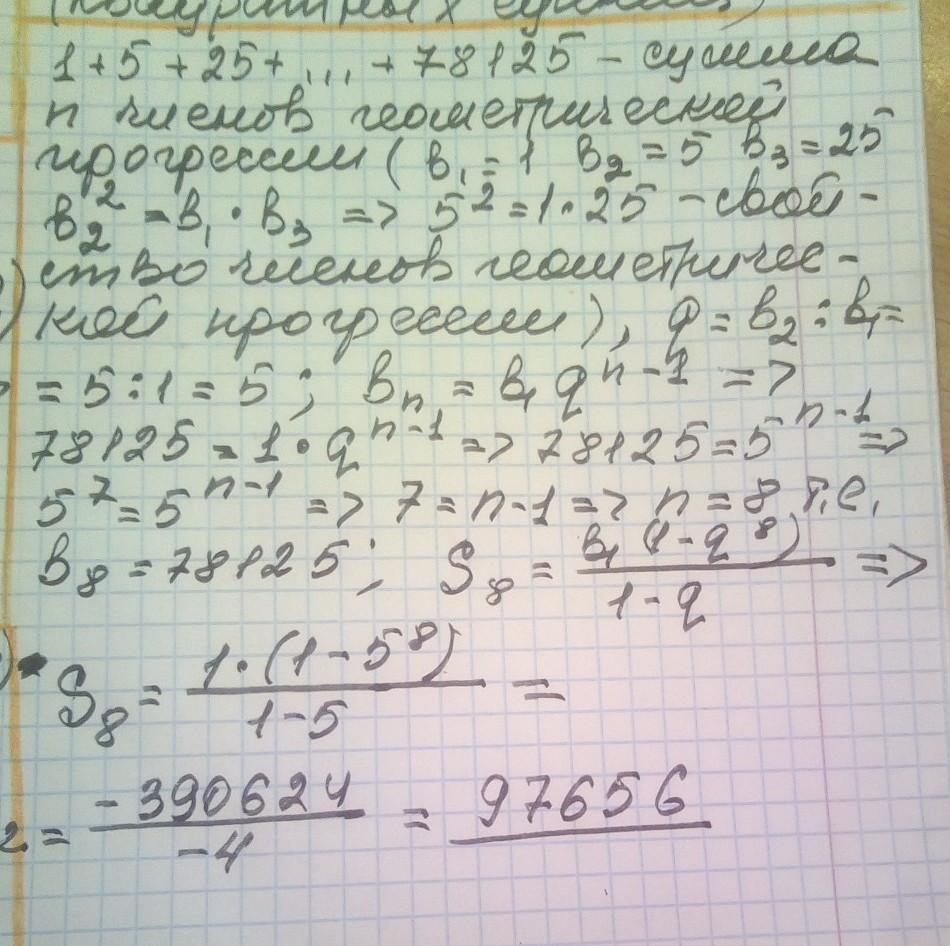 1 + 5 + 25 + ... + 78125 – сумма
n членов геометрической
прогрессии ( в₁ = 1 в₂ = 5 в₃ = 25
в₂² = в₁ · в₃ => 5² = 1 · 25 – свой-
ство членов геометричес-
кой прогрессии), q = в₂ : в₁ =
= 5 : 1 = 5 ; вₙ = в₁ qⁿ⁻¹ =>
78125 = 1 · qⁿ⁻¹ => 78125 = 5ⁿ⁻¹ =>
5⁷ = 5ⁿ⁻¹ => 7 = n - 1 => n = 8 т.е.
в₈ = 78125 ; S₈ = в₁ (1 - q⁸) / 1 - q =>
S₈ = 1 · (1 - 5⁸) / 1 - 5 =
= -390624 / -4 = 97656